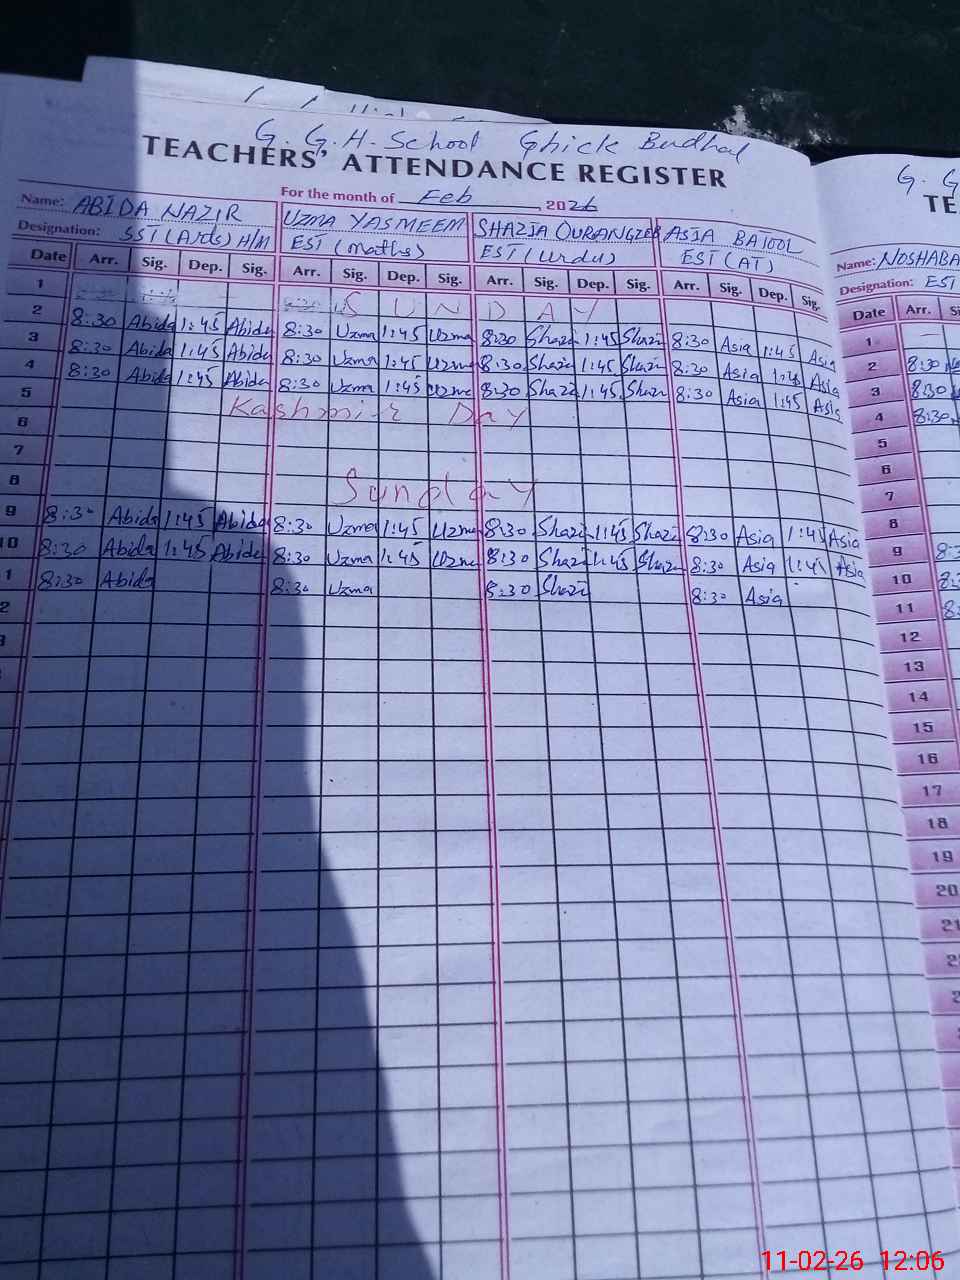 G. G. H. School Ghick Budhal
TEACHERS' ATTENDANCE REGISTER
For the month of Feb 2026
Name: ABIDA NAZIR UZMA YASMEEM SHAZIA OURANGZEB ASIA BATOOL
Designation: SST (Arts) H/M EST (maths) EST (urdu) EST (AT)
Date Arr. Sig. Dep. Sig. Arr. Sig. Dep. Sig. Arr. Sig. Dep. Sig. Arr. Sig. Dep. Sig.
1 SUNDAY
2 8:30 Abida 1:45 Abida 8:30 Uzma 1:45 Uzma 8:30 Shazi 1:45 Shazi 8:30 Asia 1:45 Asia
3 8:30 Abida 1:45 Abida 8:30 Uzma 1:45 Uzma 8:30 Shazi 1:45 Shazi 8:30 Asia 1:45 Asia
4 8:30 Abida 1:45 Abida 8:30 Uzma 1:45 Uzma 8:30 Shazi 1:45 Shazi 8:30 Asia 1:45 Asia
5 Kashmir Day
6
7
8 Sunday
9 8:30 Abida 1:45 Abida 8:30 Uzma 1:45 Uzma 8:30 Shazi 1:45 Shazi 8:30 Asia 1:45 Asia
10 8:30 Abida 1:45 Abida 8:30 Uzma 1:45 Uzma 8:30 Shazi 1:45 Shazi 8:30 Asia 1:45 Asia
1 8:30 Abida 8:30 Uzma 8:30 Shazi 8:30 Asia
2
3
G. G
TE
Name: NOSHABA
Designation: EST
Date Arr. Si
1
2 8:30
3 8:30
4 8:30
5
6
7
8
9 8:3
10 8:3
11 8:
12
13
14
15
16
17
18
19
20
21
2
2
11-02-26 12:06